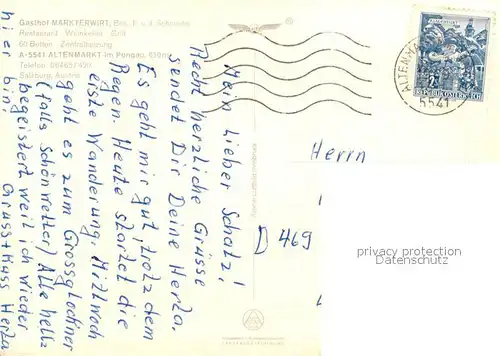 Gasthof MARKTERWIRT, Bes. F. u. A. Schneider
Restaurant Weinkeller Grill
60 Betten Zentralheizung
A-5541 ALTENMARKT im Pongau, 850m
Telefon 06465/420
Salzburg, Austria
Mein lieber Schatz!
Recht herzliche Grüsse
sendet Dir Deine Herta,
Es geht mir gut, trotz dem
Regen. Heute startet die
erste Wanderung. Mittwoch
geht es zum Grossglockner
(falls Schönwetter) Alle hells
begeistert weil ich wieder
hier bin.
Gruss + Kuss Herta
ALTENMA
5541
REPUBLIK ÖSTERREICH
Herrn
D 469
privacy protection
Datenschutz